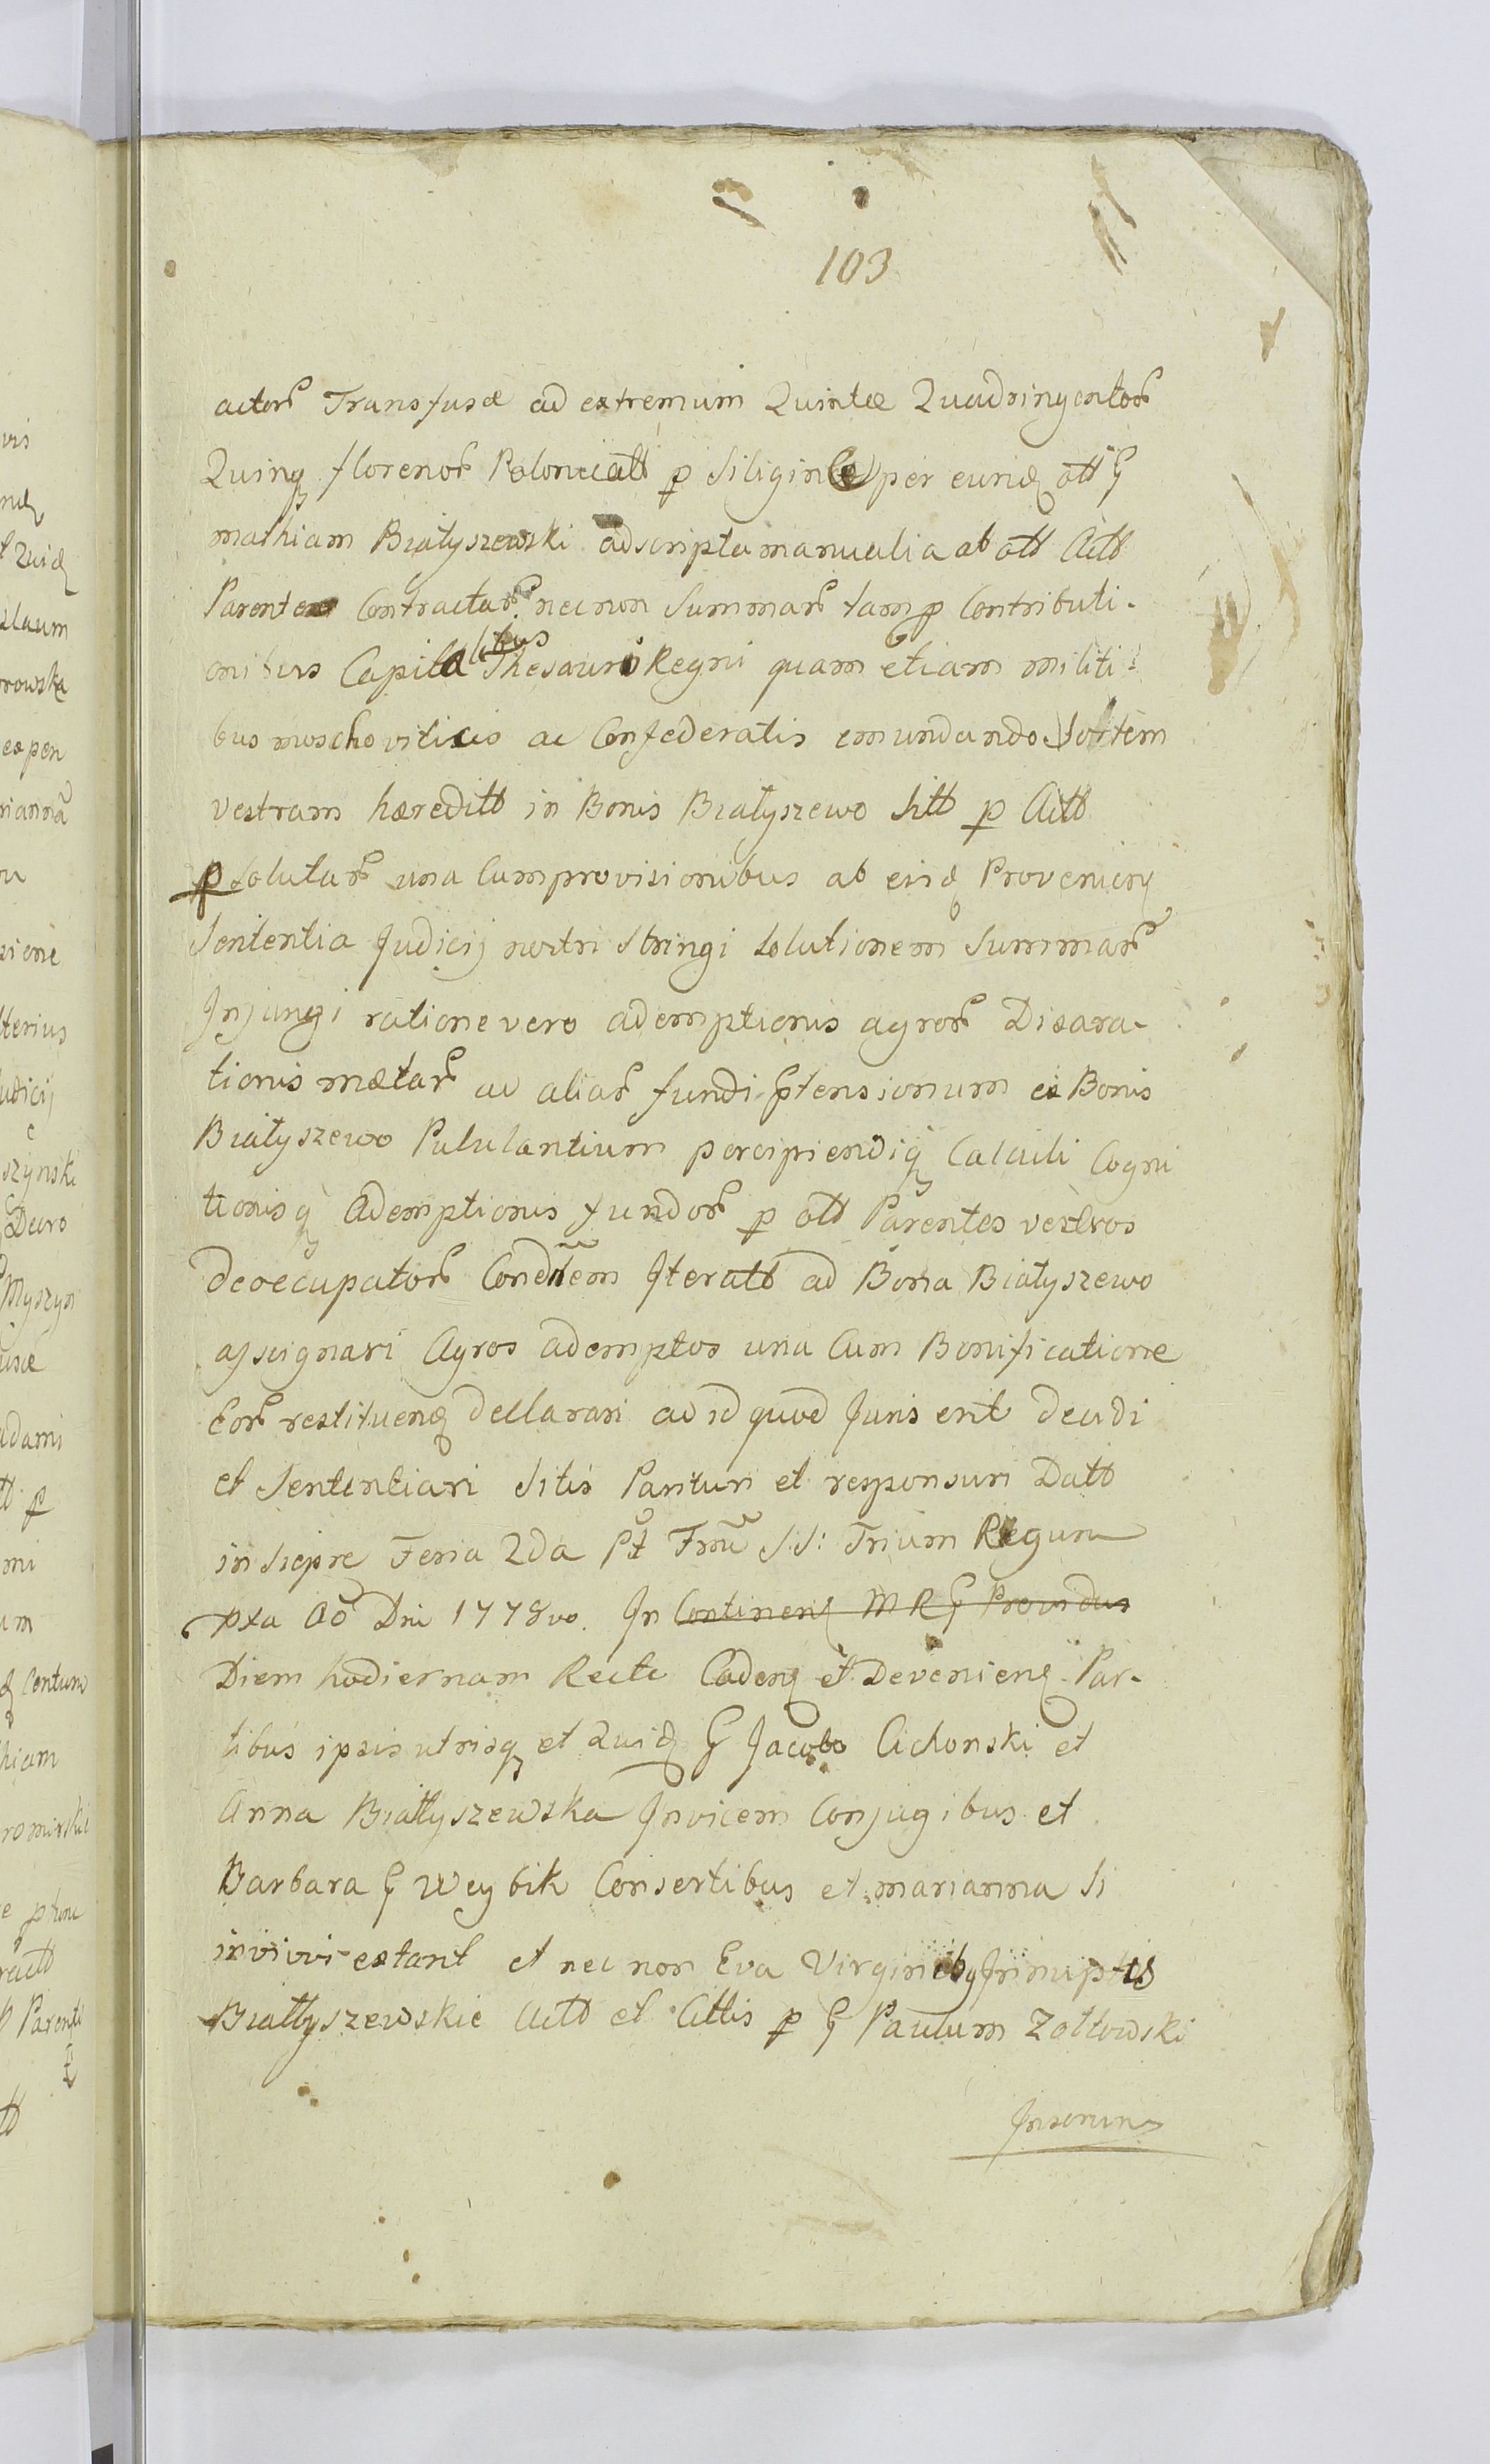 103
actor Transfusæ ad extremum Quintæ Quadringentor
Quinq florenor Polonicatt p Siligine per eund ott G
mathiam Białyszewski adscripta manualia ab ott Actt
Parente Contractar necnon Summar tam p Contributi-
onibus Capitalibus Thesauro Regni quam etiam militi-
bus moschoviticis ac Confederatis emundando Sortem
vestram hæreditt in Bonis Białyszewo sitt p Actt
psolutar una Cum provisionibus ab eisd Provenien
Sententia Judicij nostri Stringi Solutionem Summar
Injungi ratione vero ademptionis agror Disara-
tionis mætar ac aliar fundi ptensionum ex Bonis
Białyszewo Pululantium percipiendiq Calculi Cogni
tionisq Ademptionis fundor p ott Parentes vestros
deoccupator Condnem Iteratt ad Bona Białyszewo
assignari Agros ademptos una Cum Bonificatione
Eor restituend declarari ad id quod Juris erit decidi
et Sententiari Sitis Parituri et responsuri Datt
in Siepre Feria 2da Pt Fm S.S: Trium Regum
pxa Ao Dni 1778vo. In Continen M R G Providus
Diem hodiernam Recte Caden et Devenien Par-
tibus ipsis utrisq et Quid G Jacobo Cichonski et
Anna Białyszewska Invicem Conjugibus et
Barbara G Weybik Consertibus et marianna Si
in vivi extant et nec non Eva Virginiby Innuptis
Białłyszewskie Actt et Cittis p G Paulum Zołtowski